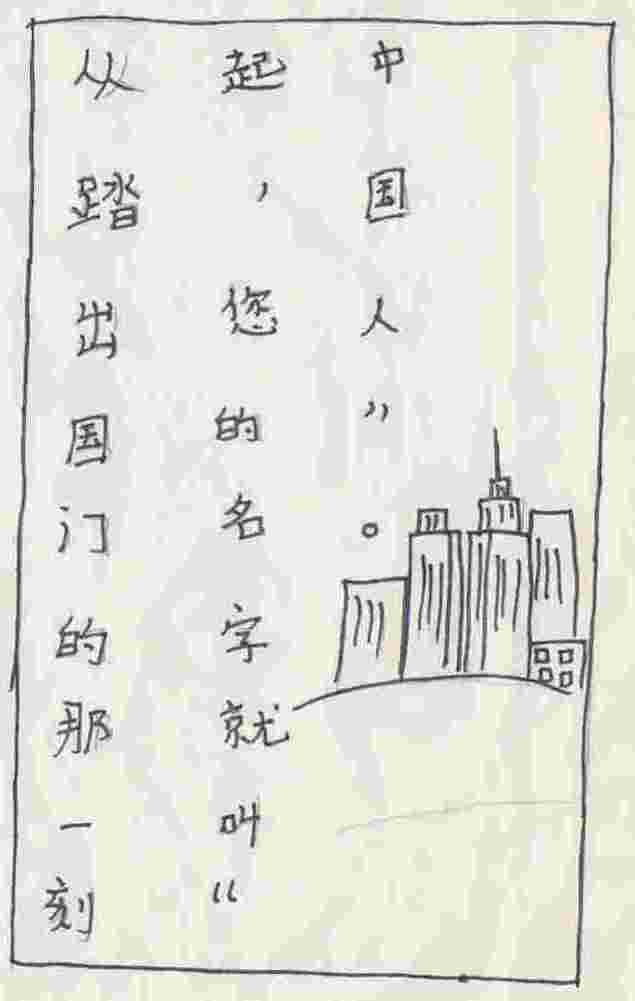 从踏出国门的那一刻
起，您的名字就叫“
中国人”。